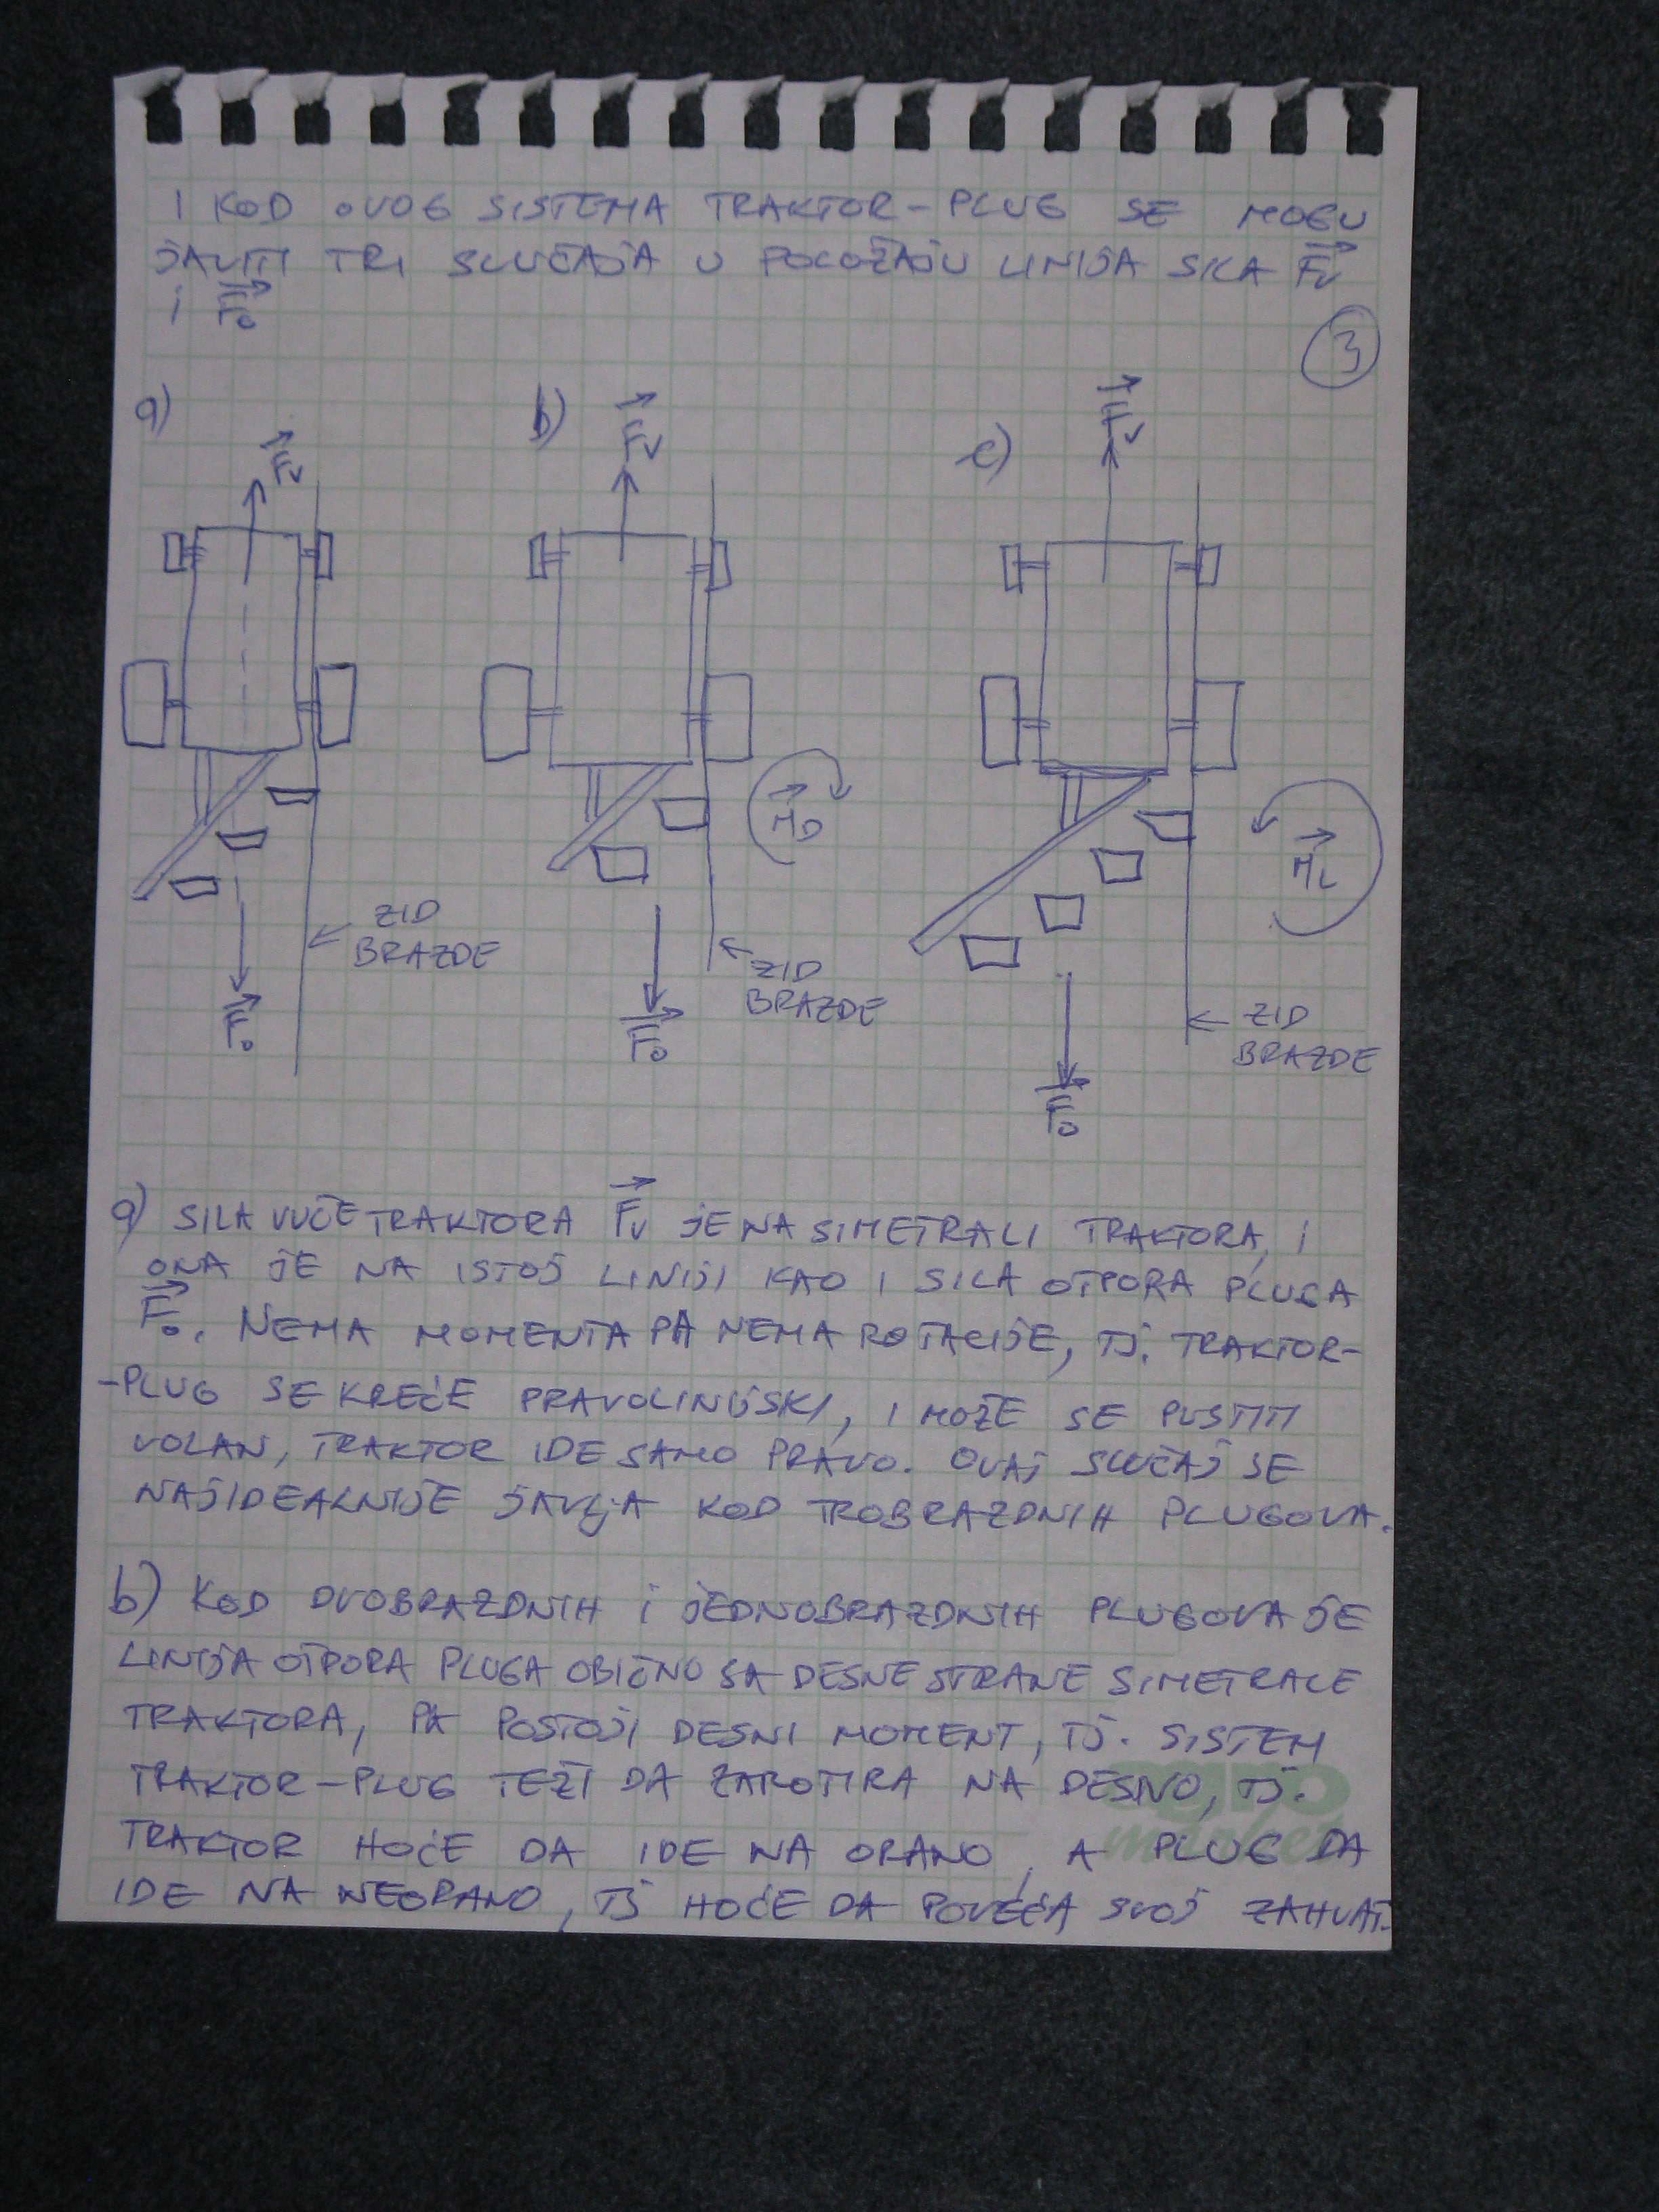 I KOD OVOG SISTEMA TRAKTOR-PLUG SE MOGU
JAVITI TRI SLUČAJA U POLOŽAJU LINIJA SILA Fv
i Fo
3
a)
b)
c)
Fv
Fv
Fv
MD
ML
ZID
BRAZDE
ZID
BRAZDE
ZID
BRAZDE
Fo
Fo
Fo
a) SILA VUČE TRAKTORA Fv JE NA SIMETRALI TRAKTORA, I
ONA JE NA ISTOJ LINIJI KAO I SILA OTPORA PLUGA
Fo. NEMA MOMENTA PA NEMA ROTACIJE, TJ. TRAKTOR-
-PLUG SE KREĆE PRAVOLINIJSKI, I MOŽE SE PUSTITI
VOLAN, TRAKTOR IDE SAMO PRAVO. OVAJ SLUČAJ SE
NAJIDEALNIJE JAVLJA KOD TROBRAZDNIH PLUGOVA.
b) KOD DVOBRAZDNIH I JEDNOBRAZDNIH PLUGOVA JE
LINIJA OTPORA PLUGA OBIČNO SA DESNE STRANE SIMETRALE
TRAKTORA, PA POSTOJI DESNI MOMENT, TJ. SISTEM
TRAKTOR-PLUG TEŽI DA ZAROTIRA NA DESNO, TJ.
TRAKTOR HOĆE DA IDE NA ORANO, A PLUG DA
IDE NA NEORANO, TJ HOĆE DA POVEĆA SVOJ ZAHVAT.
agro
market